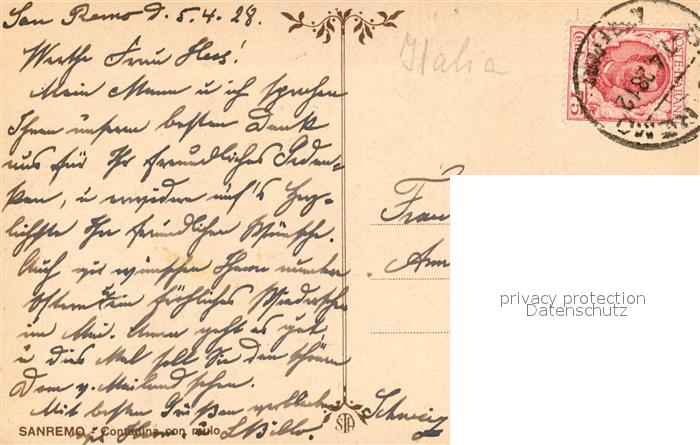 San Remo d. 5.4.28.
Werthe Frau Hess!
Mein Mann u ich sprechen
Ihnen unseren besten Dank
aus für Ihr freundliches Geden-
ken, u erwidern auf's Herz-
lichste Ihre freundlichen Wünsche.
Auch wir wünschen Ihnen
Ostern ein fröhliches Wiedersehn
im Mai. Uns geht es gut
u dies Mal soll Sie den schönen
Dom v. Mailand sehen.
Mit besten Grüßen verbleiben
Italia
Frau
Schweiz
privacy protection
Datenschutz
SANREMO - Contadina con mulo
STA
POSTE ITALIANE
75